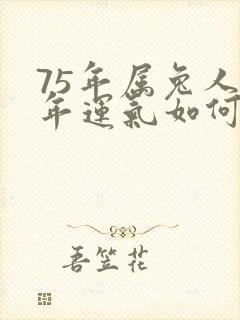 75年属兔人
年運氣如何
吾笠花